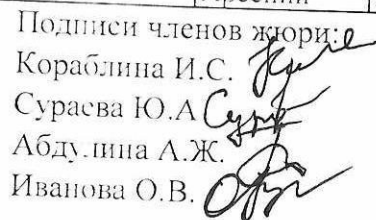 Подписи членов жюри:
Кораблина И.С.
Сураева Ю.А
Абдулина А.Ж.
Иванова О.В.